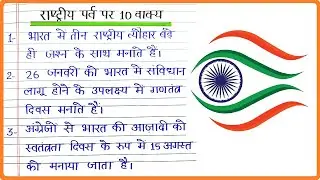 राष्ट्रीय पर्व पर 10 वाक्य
1- भारत में तीन राष्ट्रीय त्यौहार बड़े
ही जश्न के साथ मनाते हैं।
2- 26 जनवरी को भारत में संविधान
लागू होने के उपलक्ष्य में गणतंत्र
दिवस मनाते हैं।
3- अंग्रेजो से भारत की आज़ादी को
स्वतंत्रता दिवस के रूप में 15 अगस्त
को मनाया जाता है।